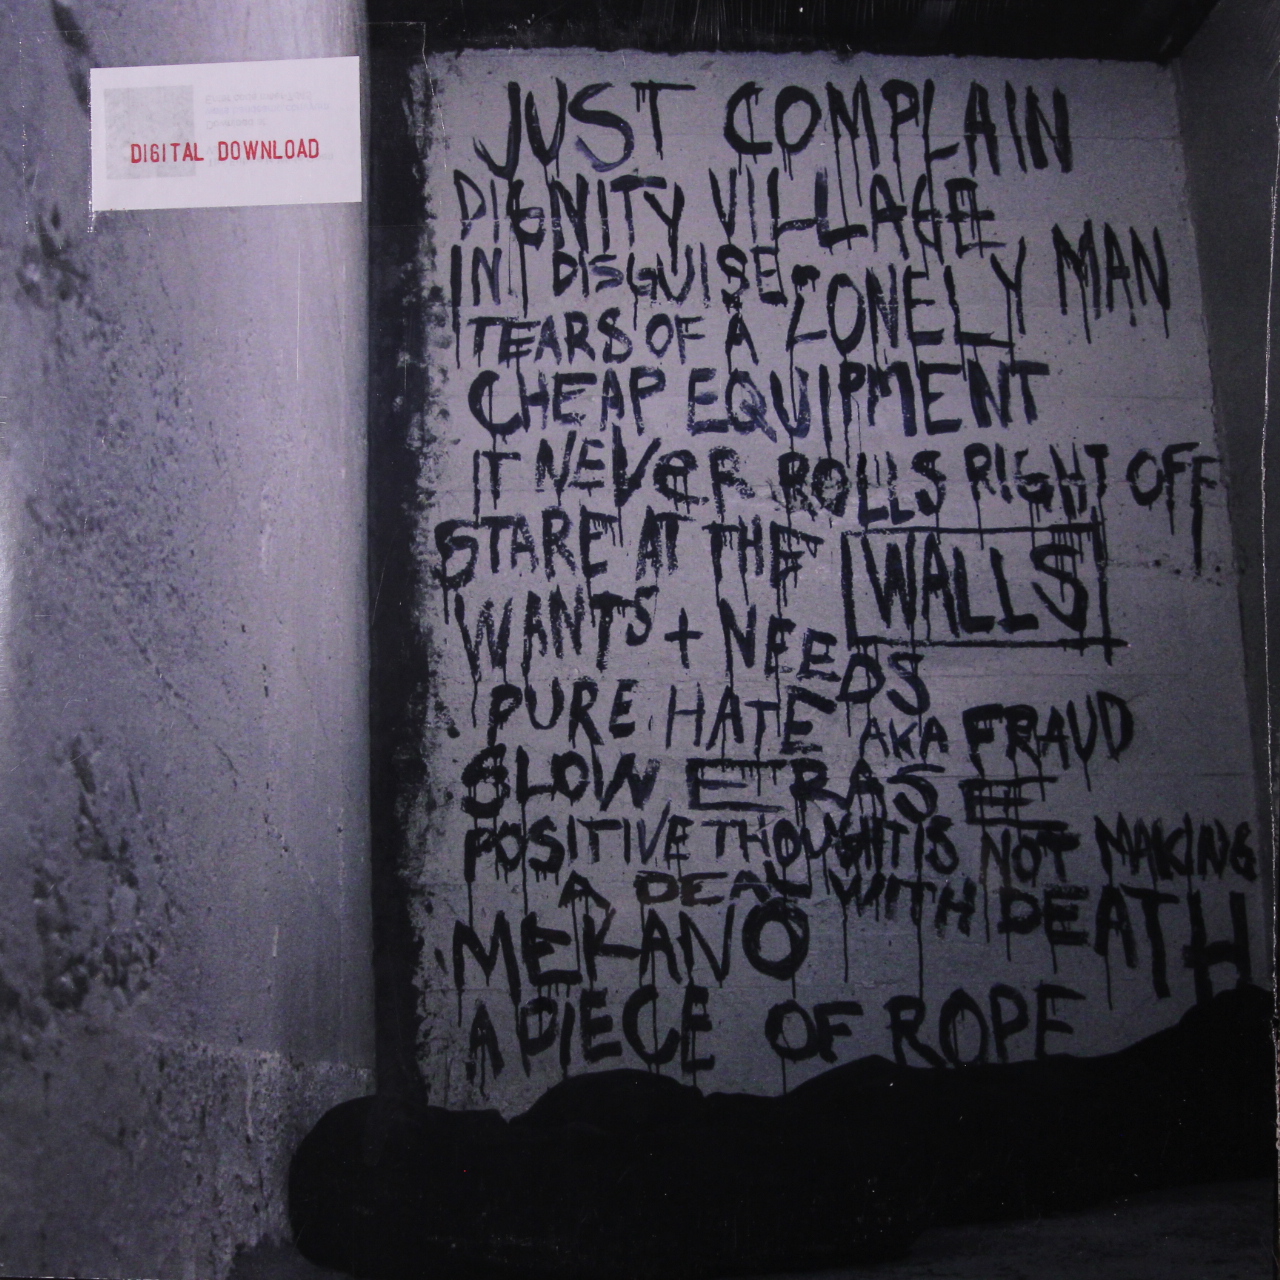 DIGITAL DOWNLOAD
JUST COMPLAIN
DIGNITY VILLAGE
IN DISGUISE, LONELY MAN
TEARS OF A
CHEAP EQUIPMENT
IT NEVeR ROLLS RIGHT OFF
STARE AT THE WALLS
WANTS + NEEDS
PURE HATE AKA FRAUD
SLOW ERASE
POSITIVE THOUGHT IS NOT MAKING
A DEAL WITH DEATH
MEKANO
A PIECE OF ROPE